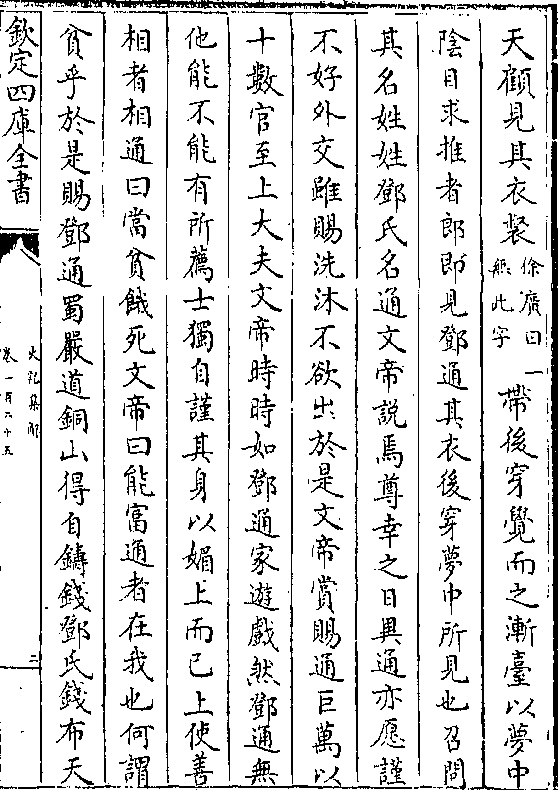 天顧見其衣裻徐廣曰一無此字帶後穿覺而之漸臺以夢中
陰目求推者郎即見鄧通其衣後穿夢中所見也召問
其名姓姓鄧氏名通文帝說焉尊幸之日異通亦愿謹
不好外交雖賜洗沐不欲出於是文帝賞賜通巨萬以
十數官至上大夫文帝時時如鄧通家遊戲然鄧通無
他能不能有所薦士獨自謹其身以媚上而已上使善
相者相通曰當貧餓死文帝曰能富通者在我也何謂
貧乎於是賜鄧通蜀嚴道銅山得自鑄錢鄧氏錢布天
欽定四庫全書
史記集解
卷一百二十五
二